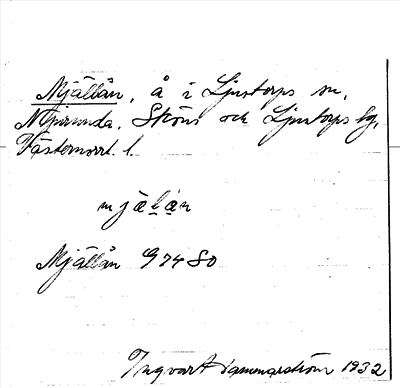 Mjällån, å i Ljustorps sn,
Njurunda, Sköns och Ljustorps tg,
Västernorrl. l.
mjälån
Mjällån G 74 SO
Ingvart Hammarström 1932